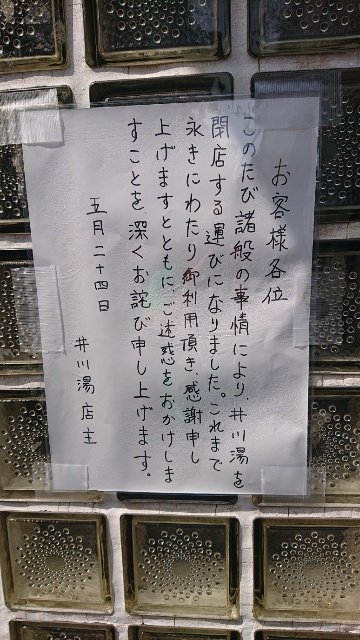 お客様各位
このたび諸般の事情により、井川湯を
閉店する運びになりました。これまで
永きにわたり御利用頂き、感謝申し
上げますとともにご迷惑をおかけしま
すことを深くお詫び申し上げます。
五月二十四日
井川湯店主